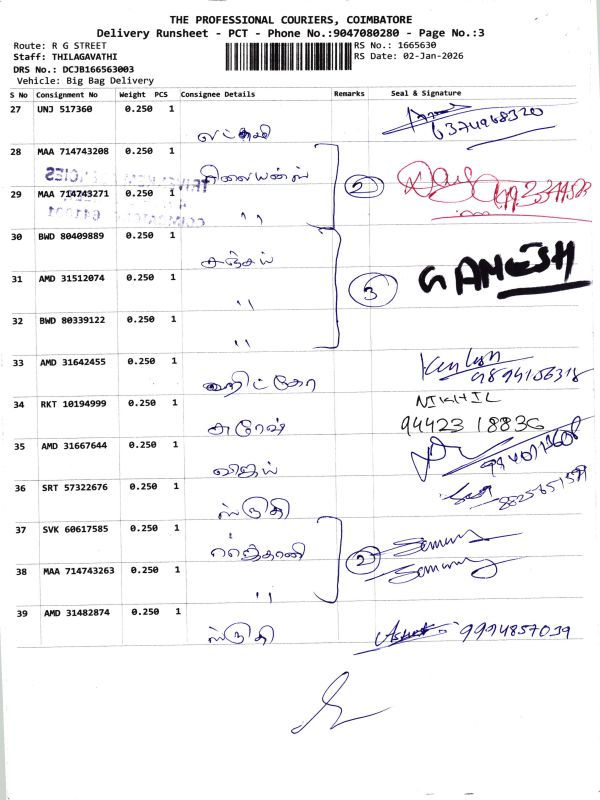 THE PROFESSIONAL COURIERS, COIMBATORE
Delivery Runsheet - PCT - Phone No.:9047080280 - Page No.:3
Route: R G STREET
RS No.: 1665630
Staff: THILAGAVATHI
RS Date: 02-Jan-2026
DRS No.: DCJB166563003
Vehicle: Big Bag Delivery
S No Consignment No Weight PCS Consignee Details Remarks Seal & Signature
27 UNJ 517360 0.250 1
லட்சுமி 6374968320
28 MAA 714743208 0.250 1
ரிலையன்ஸ் 2
29 MAA 714743271 0.250 1
641001
''
30 BWD 80409889 0.250 1
சஞ்சய்
31 AMD 31512074 0.250 1
'' 3 GANESH
32 BWD 80339122 0.250 1
''
33 AMD 31642455 0.250 1
9894106318
34 RKT 10194999 0.250 1 NIKHIL
சுரேஷ் 94423 18836
35 AMD 31667644 0.250 1
விஜய்
36 SRT 57322676 0.250 1
ஸ்ருதி
37 SVK 60617585 0.250 1
2
38 MAA 714743263 0.250 1
''
39 AMD 31482874 0.250 1
ஸ்ருதி 9994857039